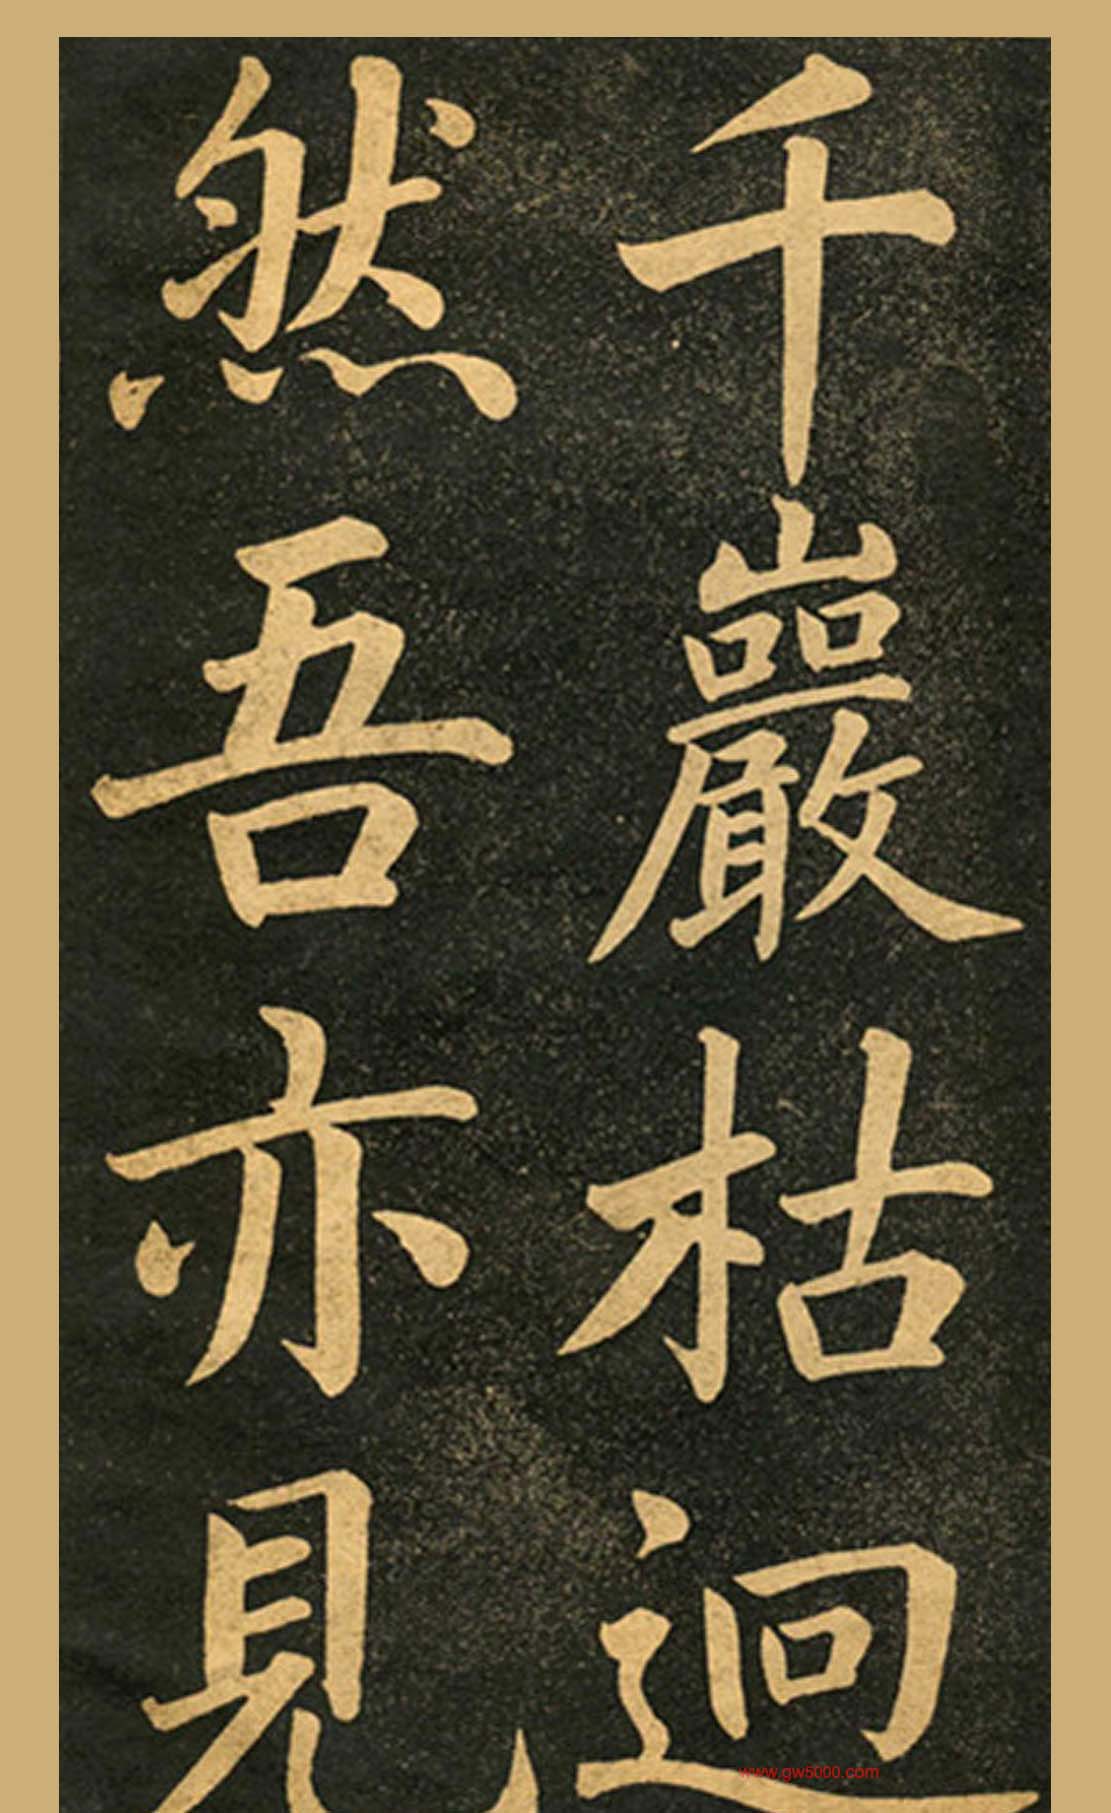 千巖枯迥
然吾亦見
www.gw5000.com